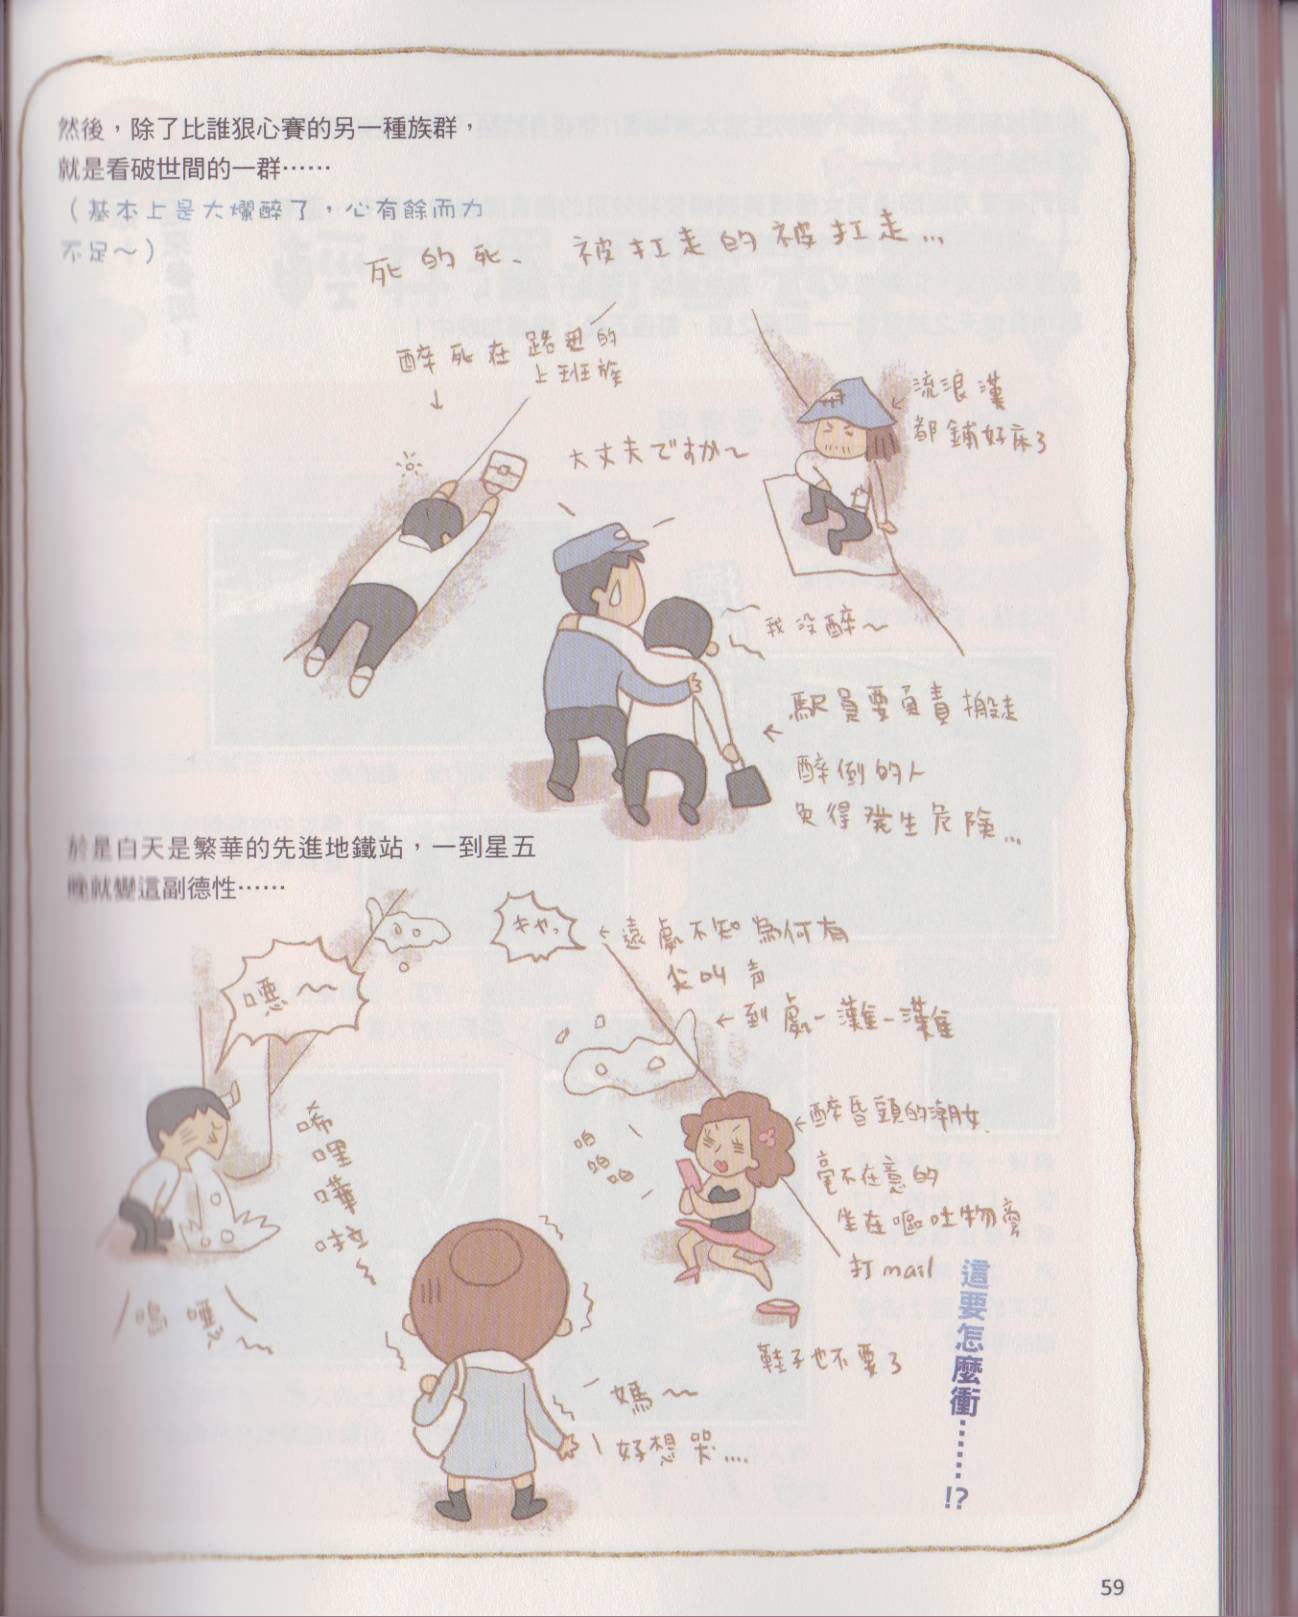 然後，除了比誰狠心賽的另一種族群，
就是看破世間的一群……
（基本上是大爛醉了，心有餘而力
不足～）
死的死、被扛走的被扛走...
醉死在路邊的
上班族
流浪漢
都鋪好床了
大丈夫ですか～
我沒醉～
駅員要負責搬走
醉倒的人
免得發生危險...
於是白天是繁華的先進地鐵站，一到星五
晚就變這副德性……
キャッ
遠處不知為何有
尖叫声
噁～
到處一灘一灘
唏哩嘩啦
啪啪啪
醉昏頭的潮女
毫不在意的
坐在嘔吐物旁
打mail
嗚噁～
鞋子也不要了
媽～
好想哭....
這要怎麼衝……!?
59